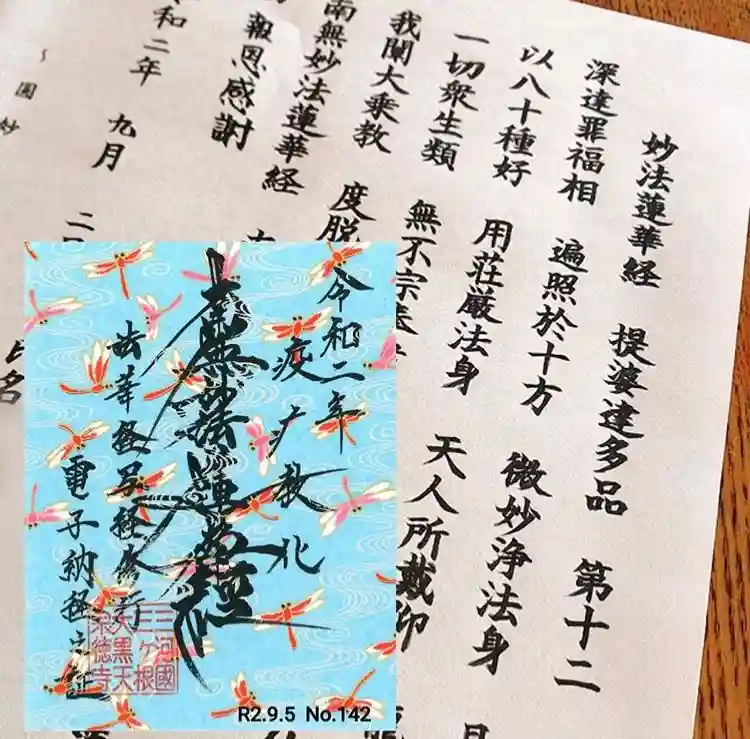 妙法蓮華経 提婆達多品 第十二
深達罪福相 遍照於十方 微妙浄法身
以八十種好 用荘厳法身 天人所戴仰
一切衆生類 無不宗
我聞大乗教 度脱
南無妙法蓮華経
報恩感謝
和二年 九月 二
令和二年
教化
南無妙法蓮華経
法華経写経修行
電子納経之証
三河國
三ヶ根
大黒天
宗徳寺
R2.9.5 No.142